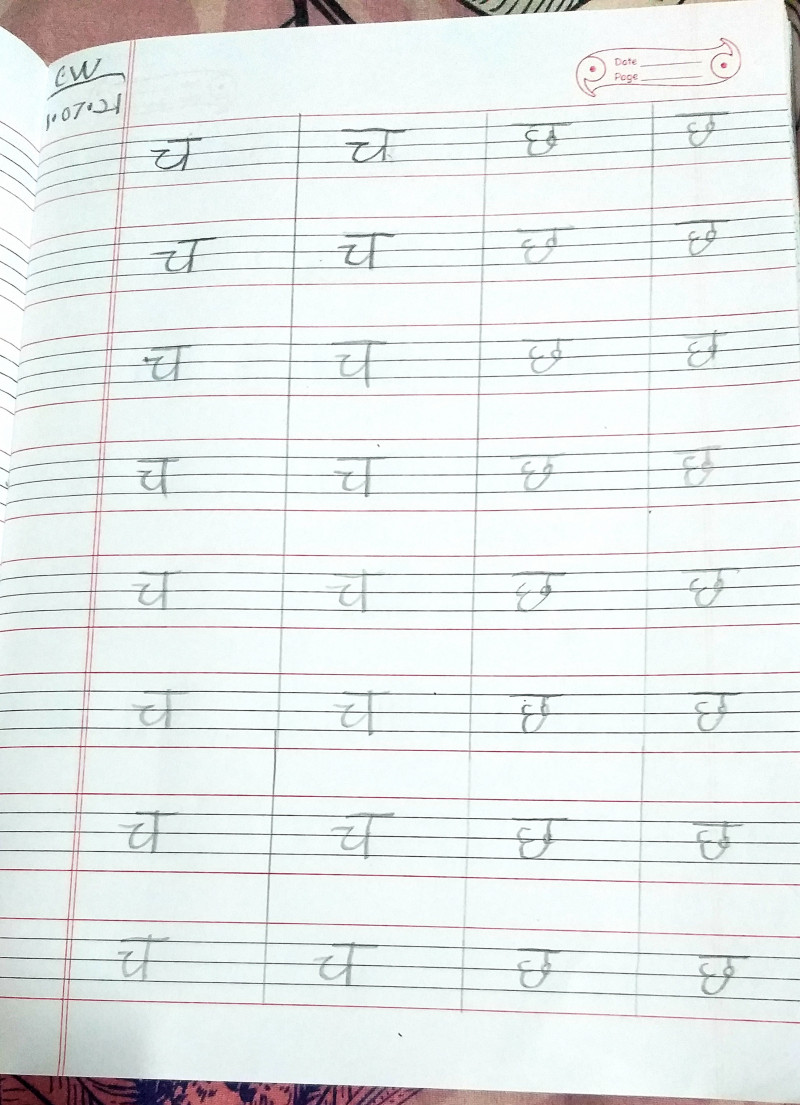 CW
Date
Page
1.07.21
च च छ छ
च च छ छ
च च छ छ
च च छ छ
च च छ छ
च च छ छ
च च छ छ
च च छ छ